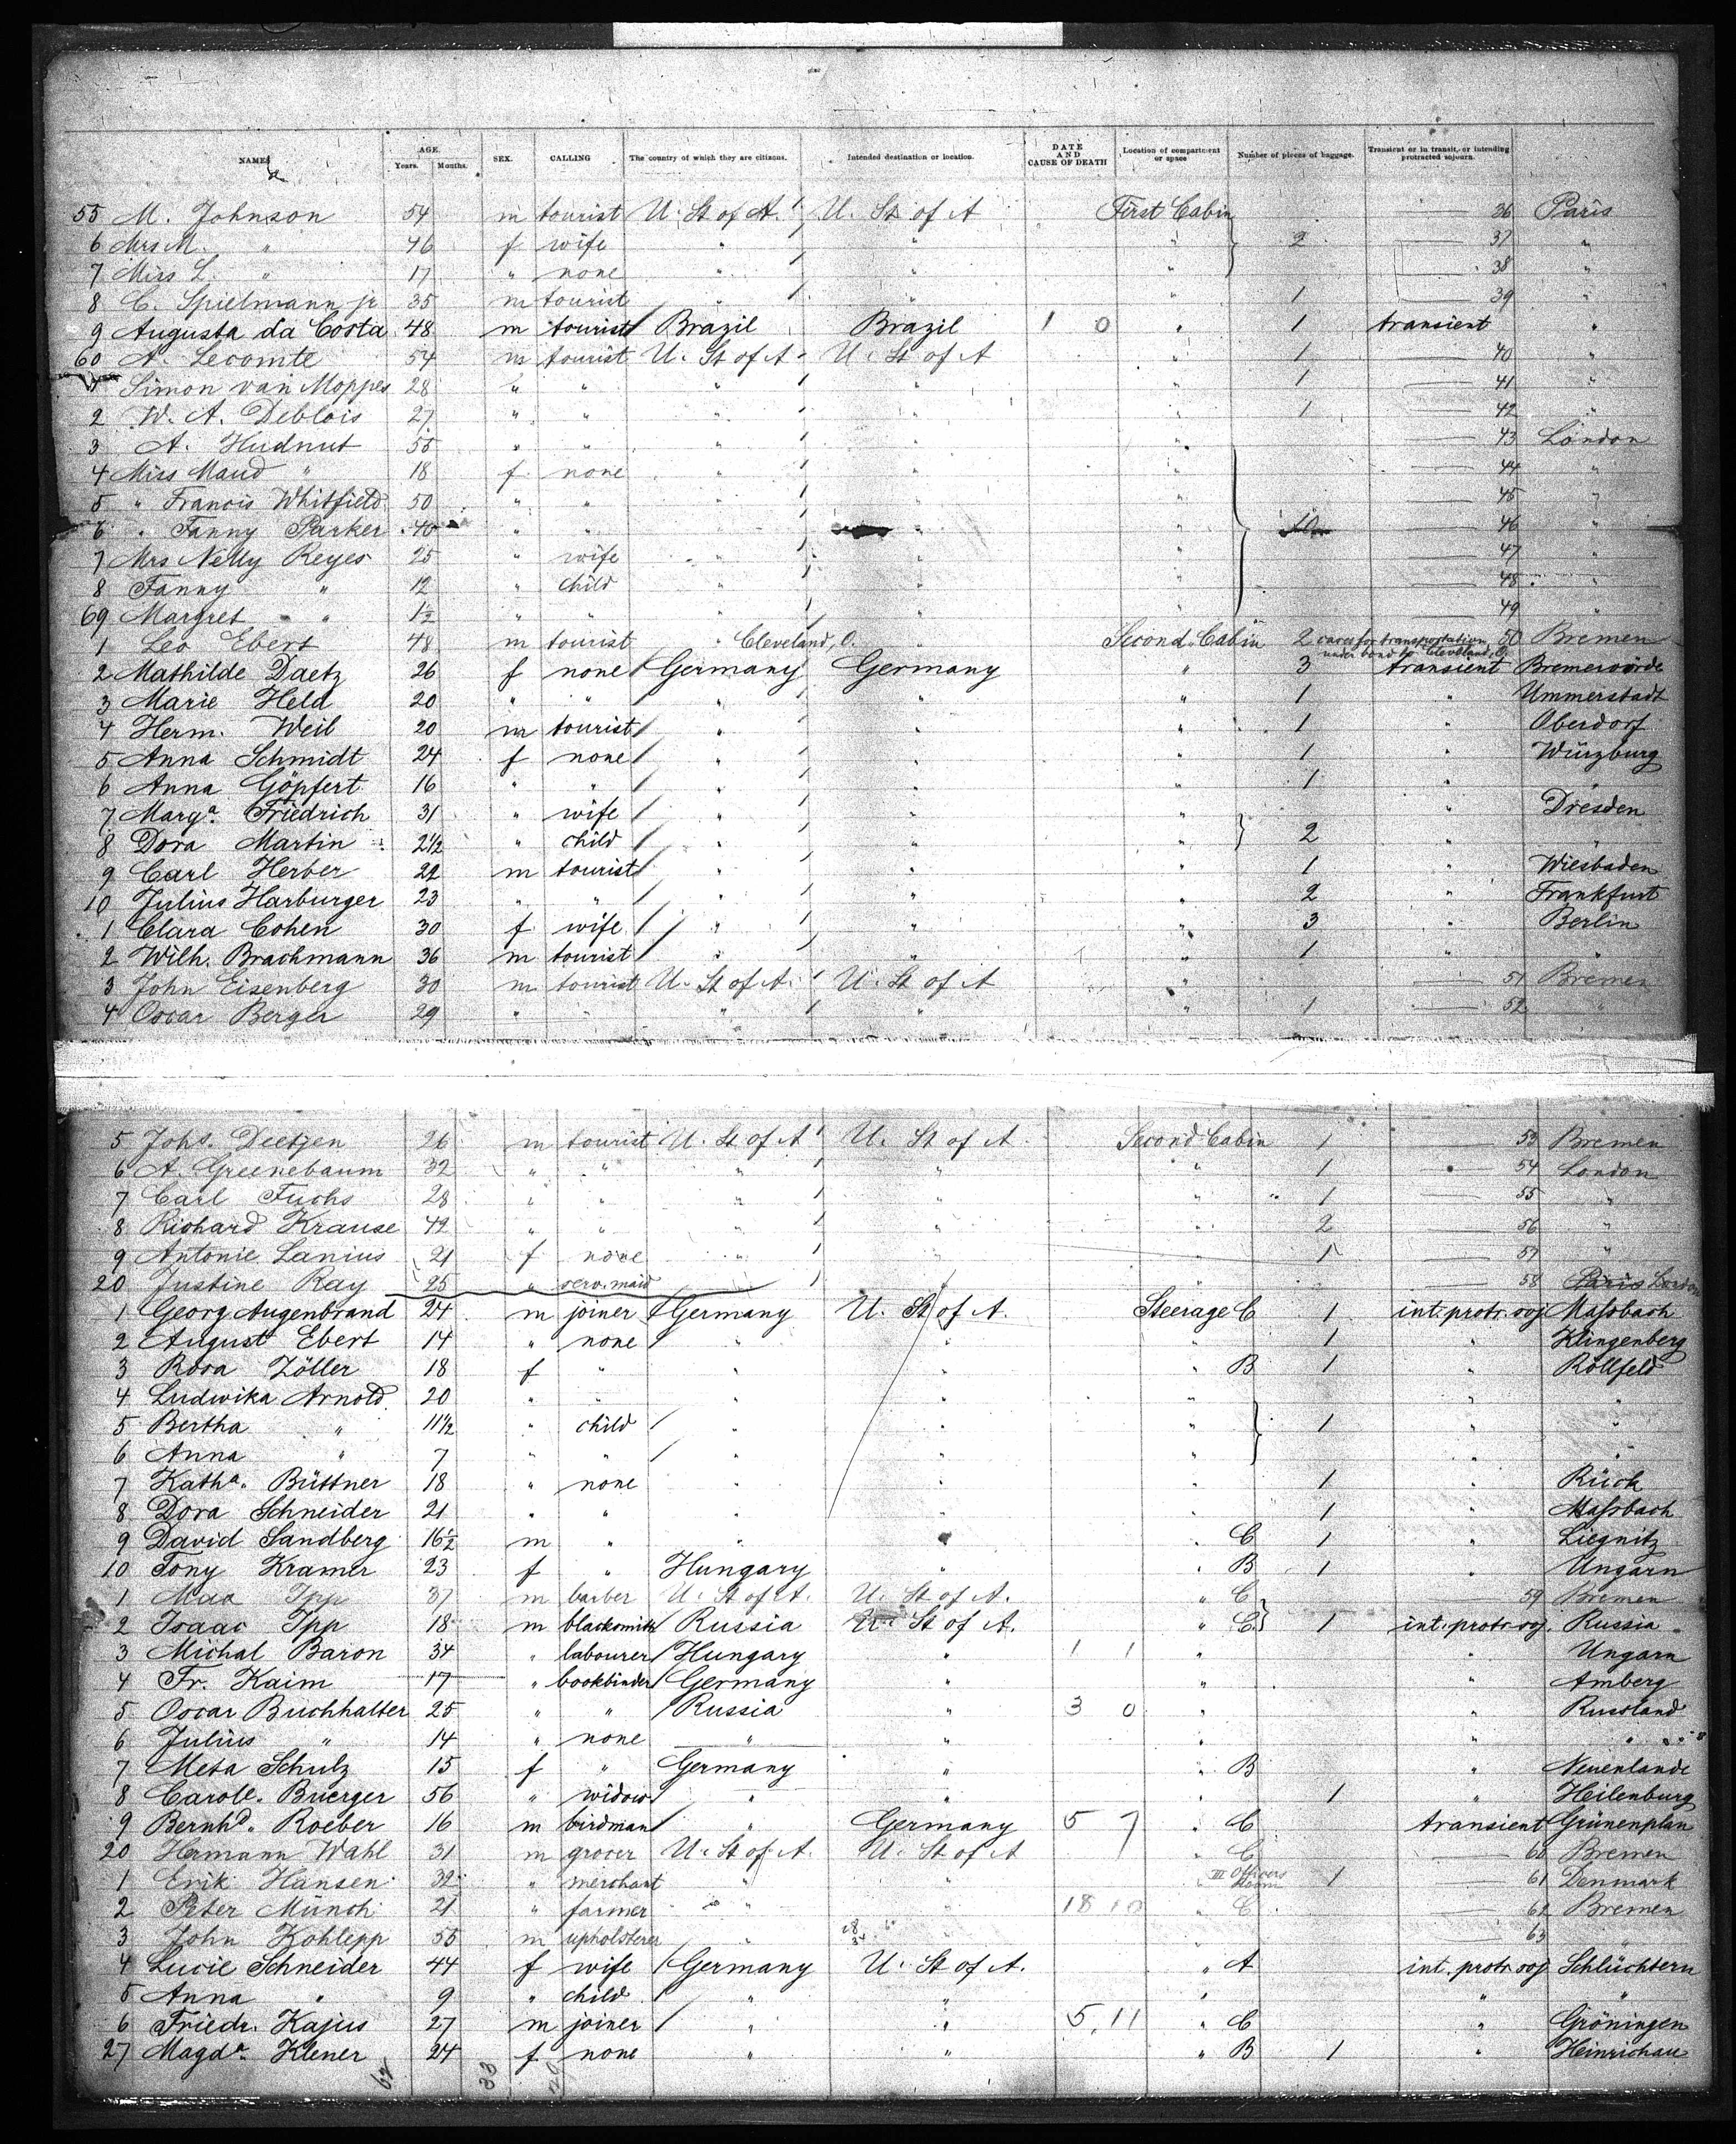 NAMES AGE. Years. Months. SEX. CALLING The country of which they are citizens. Intended destination or location. DATE AND CAUSE OF DEATH Location of compartment or space Number of pieces of baggage. Transient or in transit, or intending protracted sojourn.
55 M. Johnson 54 m tourist U. St of A. U. St of A First Cabin 36 Paris
6 Mrs M. " 46 f wife " " " 2 37 "
7 Miss L. " 17 " none " " " 38 "
8 C. Spielmann jr 35 m tourist " " " 1 39 "
9 Augusta da Costa 48 m tourist Brazil Brazil 1 0 " 1 transient "
60 A. Lecomte 54 m tourist U. St of A. U. St of A " 1 40 "
1 Simon van Moppes 28 " " " " " 1 41 "
2 W. A. Deblois 27 " " " " " 1 42 "
3 A. Hudnut 55 " " " " " 43 London
4 Miss Maud " 18 f none " " " 44 "
5 " Francis Whitfield 50 " " " " " 45 "
6 " Fanny Parker 40 " " " " " 10 46 "
7 Mrs Nelly Reyes 25 " wife " " " 47 "
8 Fanny " 12 " child " " " 48 "
69 Margret " 1½ " " " " " 49 "
1 Leo Ebert 48 m tourist " Cleveland, O. " Second Cabin 2 cases for transportation under bond to Cleveland, O. 50 Bremen
2 Mathilde Daetz 26 f none Germany Germany " 3 transient Bremervörde
3 Marie Held 20 " " " " " 1 " Ummerstadt
4 Herm. Weil 20 m tourist " " " 1 " Oberdorf
5 Anna Schmidt 24 f none " " " 1 " Würzburg
6 Anna Göpfert 16 " " " " " 1 " "
7 Marga. Friedrich 31 " wife " " " " Dresden
8 Dora Martin 2½ " child " " " 2 " "
9 Carl Herber 22 m tourist " " " 1 " Wiesbaden
10 Julius Harburger 23 " " " " " 2 " Frankfurt
1 Clara Cohen 30 f wife " " " 3 " Berlin
2 Wilh. Brachmann 36 m tourist " " " 1 " "
3 John Eisenberg 30 m tourist U. St of A. U. St of A " 51 Bremen
4 Oscar Berger 29 " " " " " 1 52 "
5 Johs. Deetjen 26 m tourist U. St of A U. St of A Second Cabin 1 53 Bremen
6 A. Greenebaum 32 " " " " " 1 54 London
7 Carl Fuchs 28 " " " " " 1 55 "
8 Richard Krause 42 " " " " " 2 56 "
9 Antonie Lanius 21 f none " " " 1 57 "
20 Justine Ray 25 " serv. maid " " 58 Paris London
1 Georg Augenbrand 24 m joiner Germany U. St of A. Steerage C 1 int. protr. soj Massbach
2 August Ebert 14 " none " " " 1 " Klingenberg
3 Rosa Zöller 18 f " " " " B 1 " Röllfeld
4 Ludwika Arnold 20 " " " " " " "
5 Bertha " 11½ " child " " " 1 " "
6 Anna " 7 " " " " " " "
7 Katha. Büttner 18 " none " " " 1 " Rück
8 Dora Schneider 21 " " " " " 1 " Massbach
9 David Sandberg 16½ m " " " " C 1 " Liegnitz
10 Tony Kramer 23 f " Hungary " " B 1 " Ungarn
1 Max Ipp 37 m barber U. St of A. U. St of A. " C 59 Bremen
2 Isaac Ipp 18 m blacksmith Russia U. St of A. " C 1 int. protr. soj. Russia
3 Michal Baron 34 " labourer Hungary " 1 1 " " Ungarn
4 Fr. Kaim 17 " bookbinder Germany " " " Amberg
5 Oscar Buchhalter 25 " " Russia " 3 0 " " Russland
6 Julius " 14 " none " " " " "
7 Meta Schulz 15 f " Germany " " B " Neuenlande
8 Caroll. Buerger 56 " widow " " " 1 " Heilenburg
9 Bernhd. Roeber 16 m birdman " Germany 5 7 " C transient Grünenplan
20 Hermann Wahl 31 m grocer U. St of A. U. St of A " C 60 Bremen
1 Erik Hansen 32 " merchant " " III Officers Room 1 61 Denmark
2 Peter Münch 21 " farmer " " 18 10 " C 62 Bremen
3 John Kohlepp 55 m upholsterer " " " 63 "
4 Lucie Schneider 44 f wife Germany U. St of A. " A int. protr. soj Schlüchtern
5 Anna " 9 " child " " " " "
6 Friedr. Kajus 27 m joiner " " 5, 11 " C " Gröningen
27 Magda. Klener 24 f none " " " B 1 " Heinrichau
62 33 29